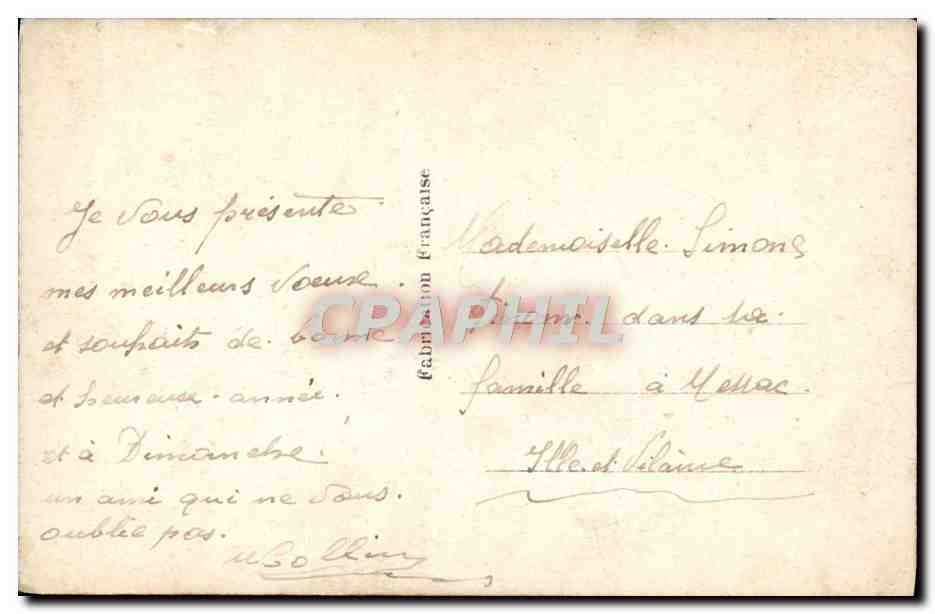 Je vous présente
mes meilleurs voeux
et souhaits de bonne
et heureuse année.
et à Dimanche.
un ami qui ne vous.
oublie pas.
Fabrication Française
CPAPHIL
Mademoiselle Simone
dans sa
famille à Messac.
Ille et Vilaine